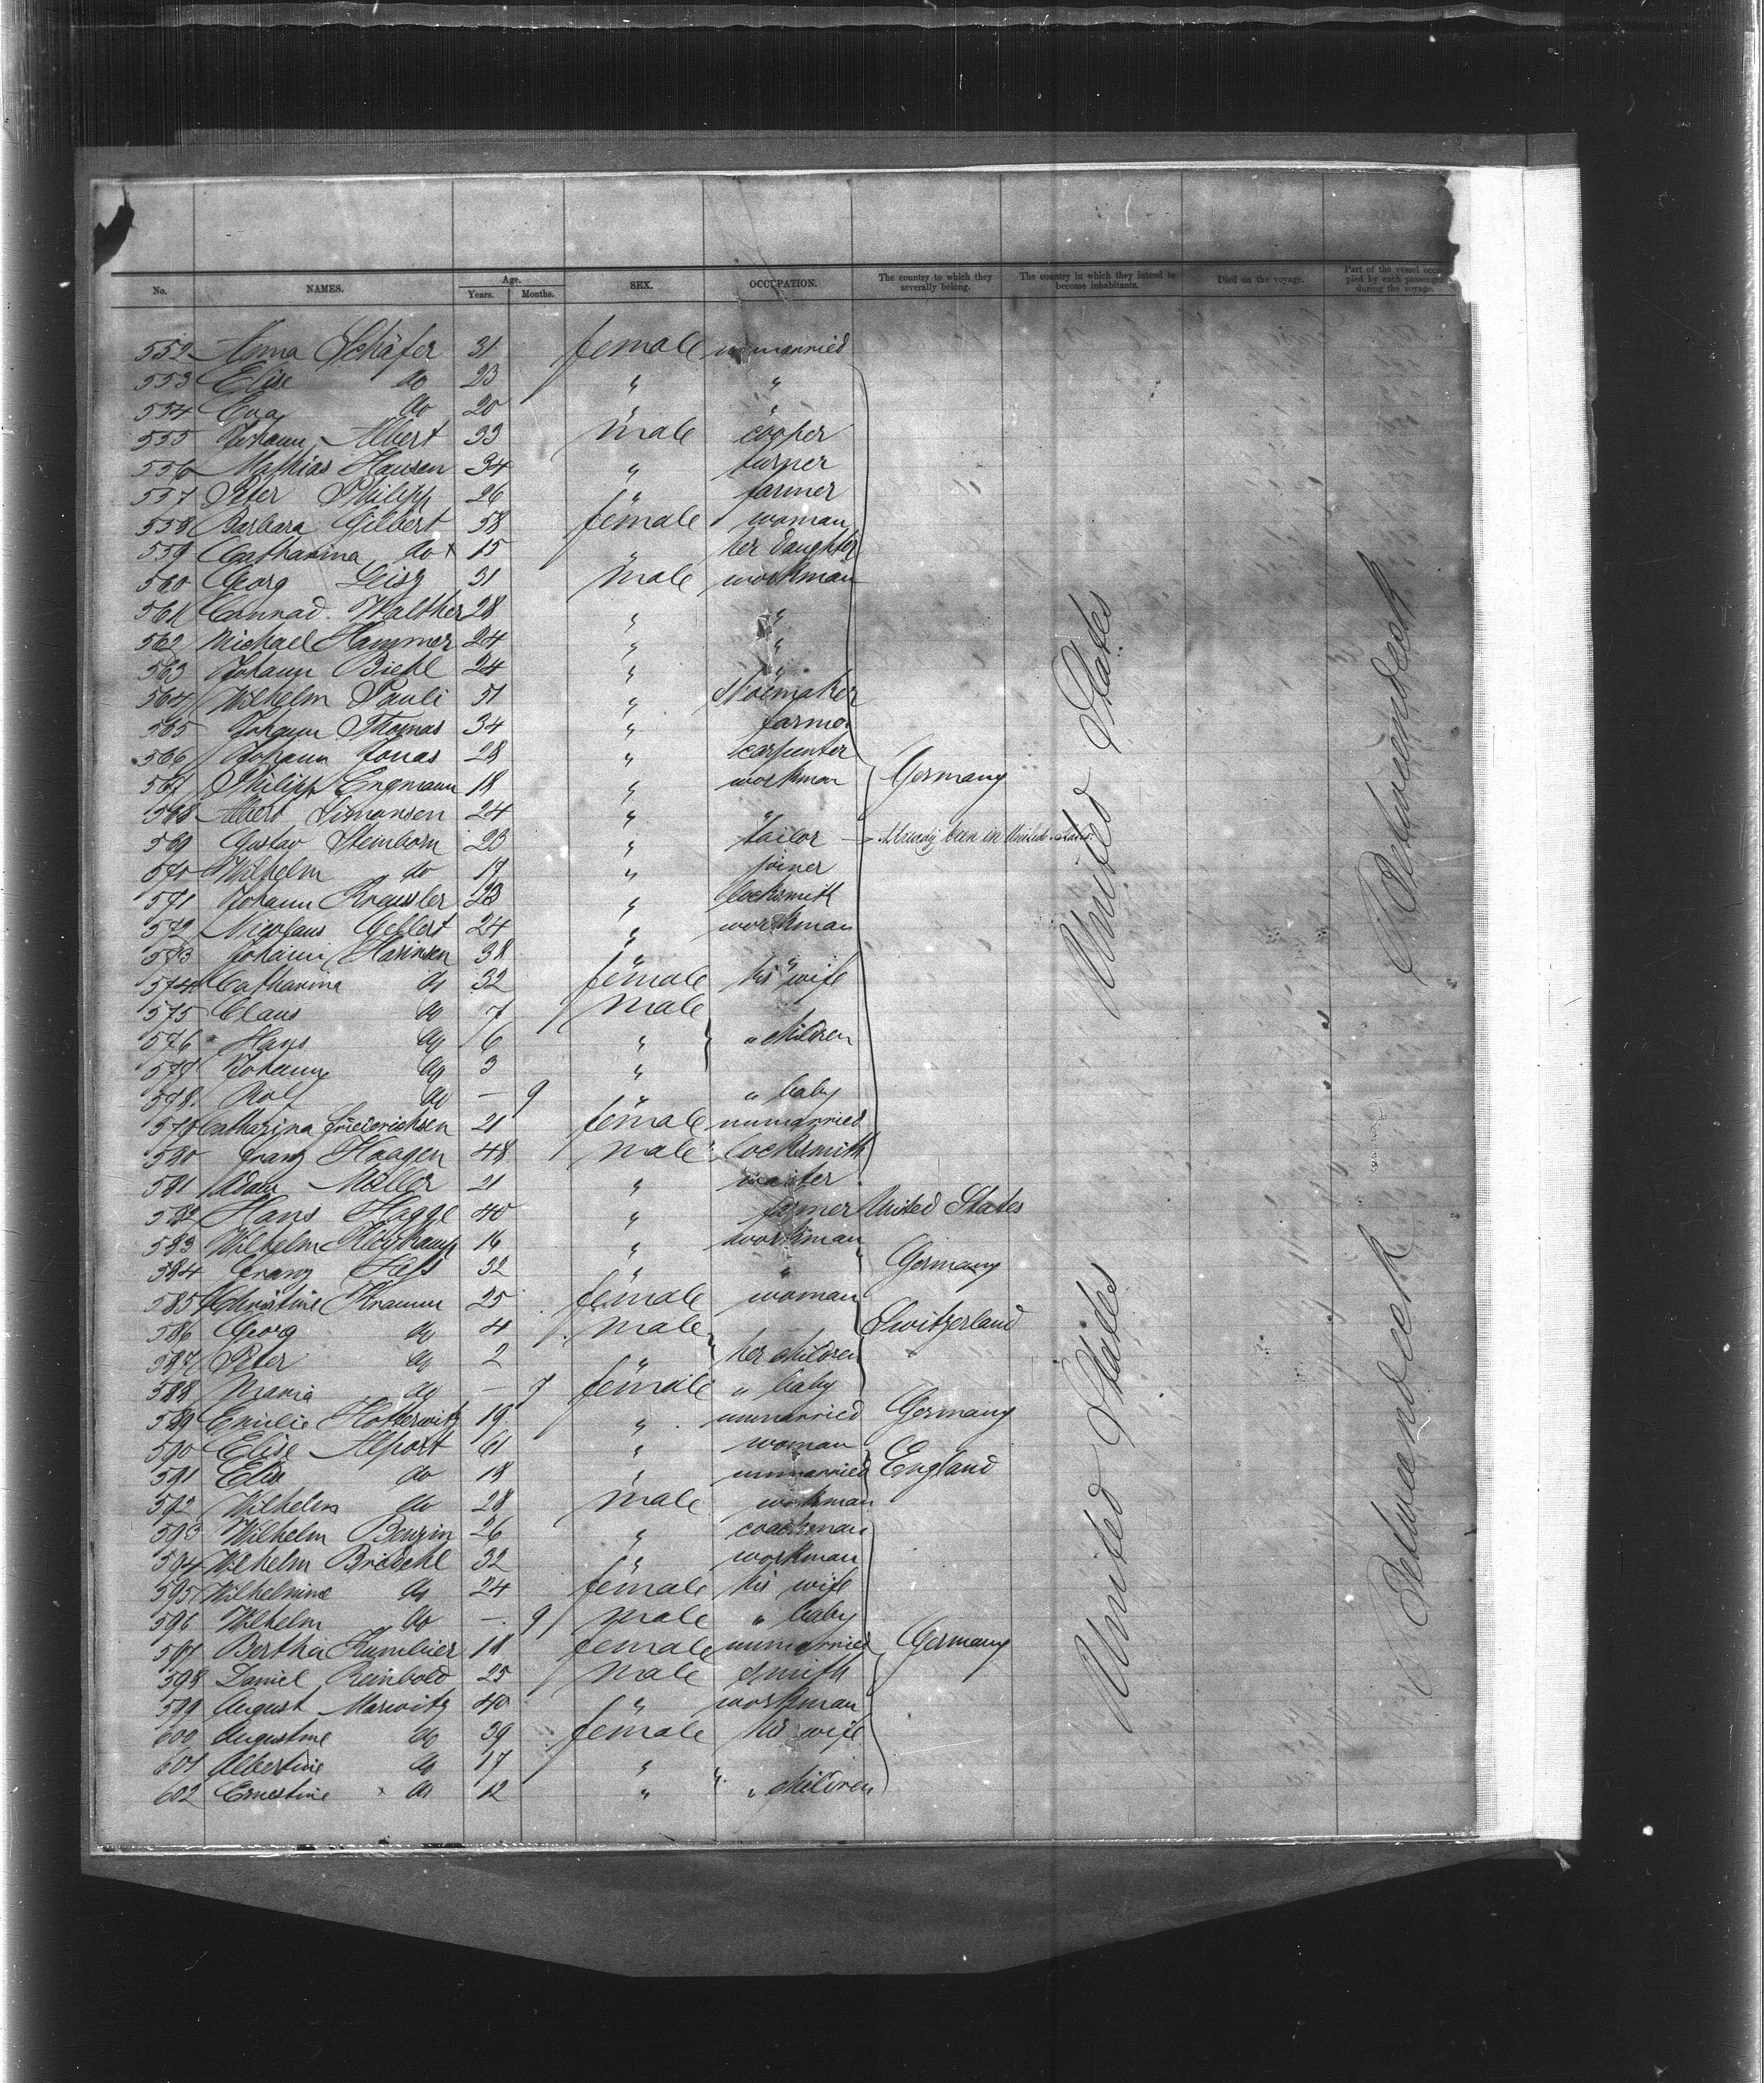 No. NAMES. Age. Years. Months. SEX. OCCUPATION. The country to which they severally belong. The country in which they intend to become inhabitants. Died on the voyage. Part of the vessel occupied by each passenger during the voyage.
552 Anna Schäfer 31 female unmarried
553 Elise do 23 " "
554 Eva do 20 " "
555 Johann Albert 33 male cooper
556 Mathias Hansen 34 " turner
557 Peter Philipp 26 " farmer
558 Barbara Gilbert 58 female woman
559 Catharina do 15 " her daughter
560 Georg 31 male workman
561 Connrad Walther 28 " "
562 Michael Hammer 24 " "
563 Johann Biehl 24 " "
564 Wilhelm Pauli 51 " Shoemaker
565 Johann Thomas 34 " farmer
566 Johann Jonas 28 " carpenter
567 Philipp Engmann 18 " workman Germany United States Betweendeck
568 Albert Simonsen 24 " "
569 Gustav Steinborn 23 " tailor Already been in United States
570 Wilhelm do 17 " joiner
571 Johann 23 " locksmith
572 Nicolaus Gellert 24 " workman
573 Johann 38 " "
574 Catharina do 32 female his wife
575 Claus do 7 male
576 Hans do 6 " " children
577 Johann do 3 "
578 Rolf do — 9 " " baby
579 Catharina Friedrichsen 21 female unmarried
580 Franz Haagen 48 male locksmith
581 Adam Müller 21 "
582 Hans Haggl 40 " farmer United States
583 Wilhelm 16 " workman
584 Franz Hess 32 " " Germany
585 Christine Kramm 25 female woman
586 Georg do 4 male Switzerland
587 Peter do 2 " her children
588 Maria do — 7 female " baby
589 Emilie 19 " unmarried Germany
590 Elise Alport 61 " woman
591 Elise do 18 " unmarried England
592 Wilhelm do 28 male workman United States Betweendeck
593 Wilhelm 26 " coachman
594 Wilhelm 32 " workman
595 Wilhelmine do 24 female his wife
596 Wilhelm do — 9 male " baby
597 Bertha 18 female unmarried Germany
598 Daniel Reinbold 25 male smith
599 August Marwitz 40 " workman
600 Augustine do 39 female his wife
601 Albertine do 17 "
602 Ernestine do 12 " " children